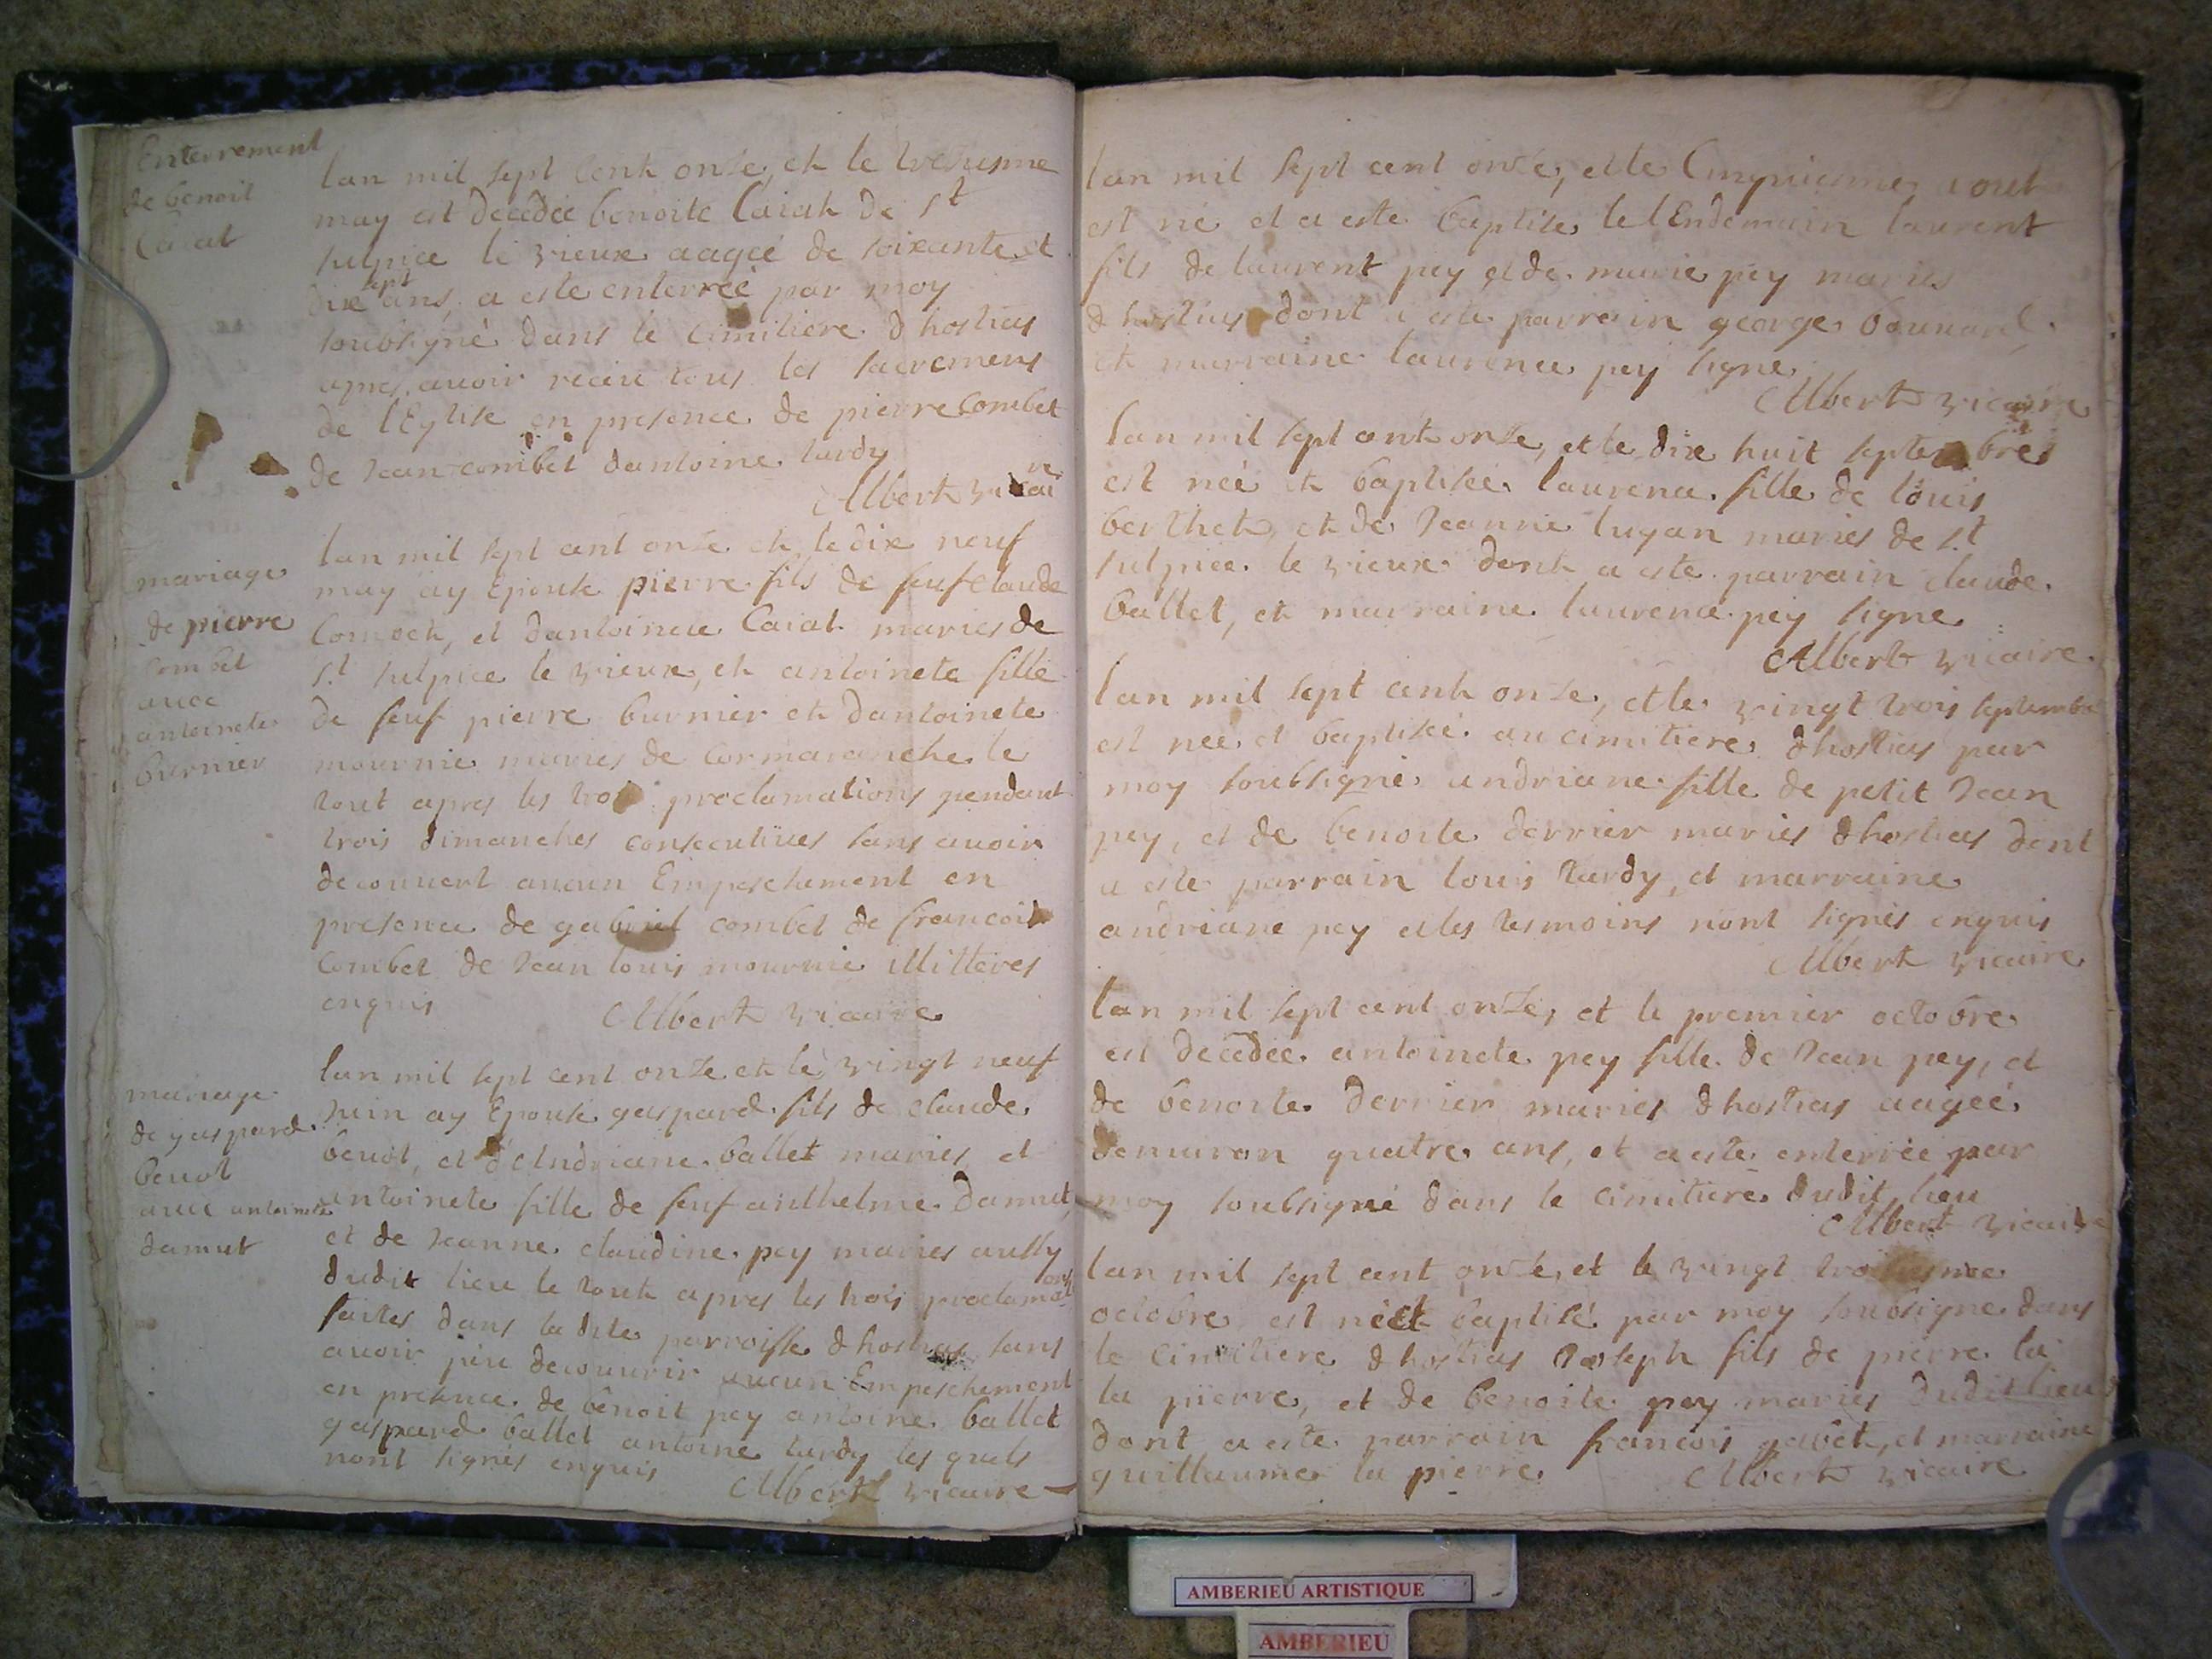 Enterrement
de benoit
Caiat
lan mil sept cent onze, et le tresiesme
may est decedée benoite Caiat de st
sulpice le vieux aagée de soixante et
dix sept ans, a este enterrée par moy
soubsigné dans le cimitiere dhostias
apres avoir receu tous les sacremens
de lEglise en presence de pierre Combet
de Jean combet dantoine tardy
Albert vicaire
mariage
de pierre
combet
avec
antoinete
burnier
lan mil sept cent onze et le dix neuf
may ay Epouse pierre fils de feuf claude
Combet, et dantoinete Caiat maries de
st sulpice le vieux, et antoinete fille
de feuf pierre burnier et dantoinete
mournie maries de cormaranche le
tout apres les trois proclamations pendant
trois dimanches consecutives sans avoir
decouvert aucun Empeschement en
presence de gabriel combet de francois
Combet de Jean louis mournie illitteres
enquis
Albert vicaire
mariage
de gaspard
benot
avec antoinete
damut
lan mil sept cent onze et le vingt neuf
Juin ay Epouse gaspard fils de claude
benot, et dAndriane ballet maries, et
antoinete fille de feuf anthelme damut
et de Jeanne claudine pey maries aussy
dudit lieu le tout apres les trois proclamaons
faites dans la dite parroisse dhostias sans
avoir peu decouvrir aucun Empeschement
en presence de benoit pey antoine ballet
gaspard ballet antoine tardy les quels
nont signés enquis
Albert vicaire
lan mil sept cent onze, et le Cinquiesme aout
est né et a este baptise le lEndemain laurent
fils de laurent pey et de marie pey maries
dhostias dont a este parrain george
et marraine laurence pey signe
Albert vicaire
lan mil sept cent onze, et le dix huit septembre
est née et baptisée laurence fille de louis
berthet, et de Jeanne lugan maries de st
sulpice le vieux dont a este parrain claude
ballet, et marraine laurence pey signe
Albert vicaire
lan mil sept cent onze, et le vingt trois septembre
est née et baptisée au cimitiere dhostias par
moy soubsigné andriane fille de petit Jean
pey, et de benoite derrier maries dhostias dont
a este parrain louis tardy, et marraine
andriane pey et les tesmoins nont signés enquis
Albert vicaire
lan mil sept cent onze, et le premier octobre
est decedée antoinete pey fille de Jean pey, et
de benoite derrier maries dhostias aagée
denuiron quatre ans, et a este enterrée par
moy soubsigné dans le cimitiere dudit lieu
Albert vicaire
lan mil sept cent onze, et le vingt troisiesme
octobre est né et baptisé par moy soubsigné dans
le cimitiere dhostias Joseph fils de pierre la
la pierre, et de benoite pey maries dudit lieu
dont a este parrain francois gabet, et marraine
guillaume la pierre
Albert vicaire
AMBERIEU ARTISTIQUE
AMBERIEU